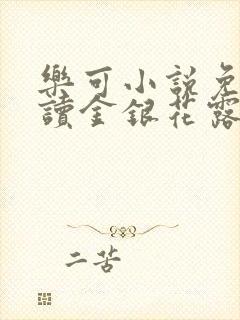 樂可小說免
讀金銀花露
二苦